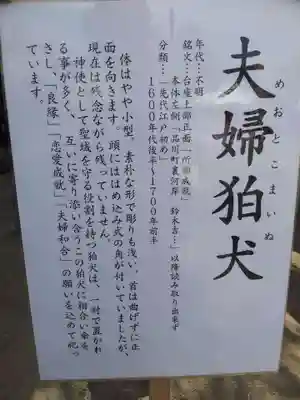 夫婦狛犬
めおとこまいぬ
年代…不明
銘文…台座上部正面「所願成就」
本体左側「品川町裏河岸 鈴木吉…」以降読み取り出来ず
分類…「先代江戸初め」
1600年代後半〜1700年前半
体はやや小型、素朴な形で彫りも浅い、首は曲げずに正
面を向きます。頭にははめ込み式の角が付いていましたが、
現在は残念ながら残っていません。
神使として聖域を守る役割を持つ狛犬は、一対で置かれ
る事が多く、互いに寄り添い合うこの狛犬に相合い傘を
さし、「良縁」「恋愛成就」「夫婦和合」の願いを込めて祀っ
ています。